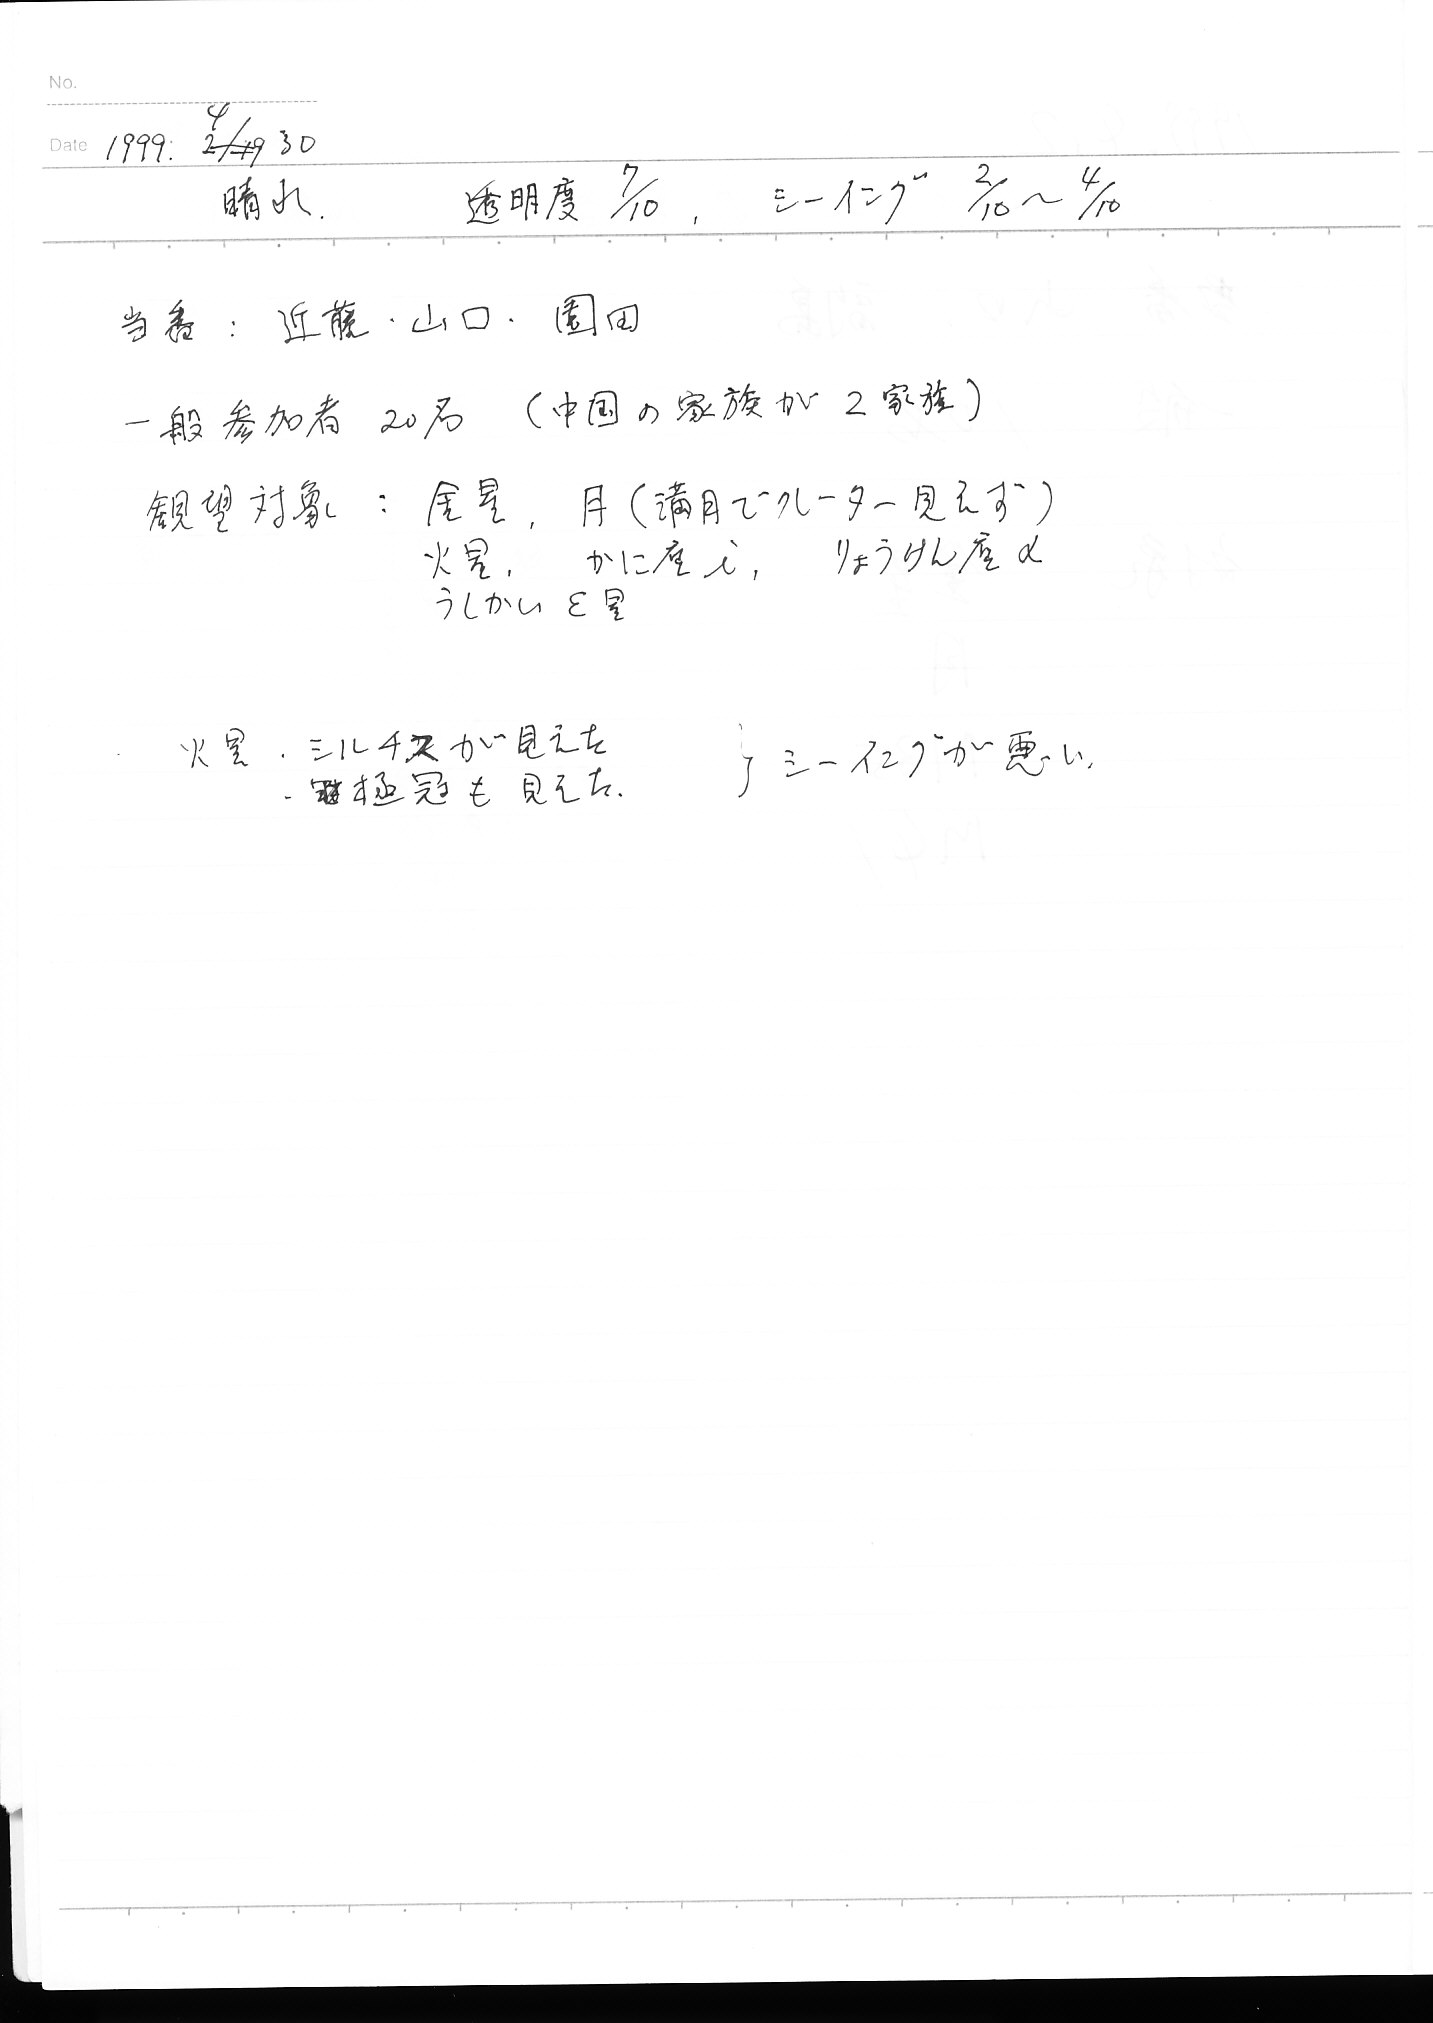 No.
Date 1999. 4/30
晴れ. 透明度 7/10, シーイング 2/10～4/10
当番: 近藤・山口・園田
一般参加者 20名 (中国の家族が2家族)
観望対象: 金星, 月(満月でクレーター見えず)
火星, かに座 i, りょうけん座α
うしかい ε星
火星 ・シルチスが見えた } シーイングが悪い.
・極冠も見えた.